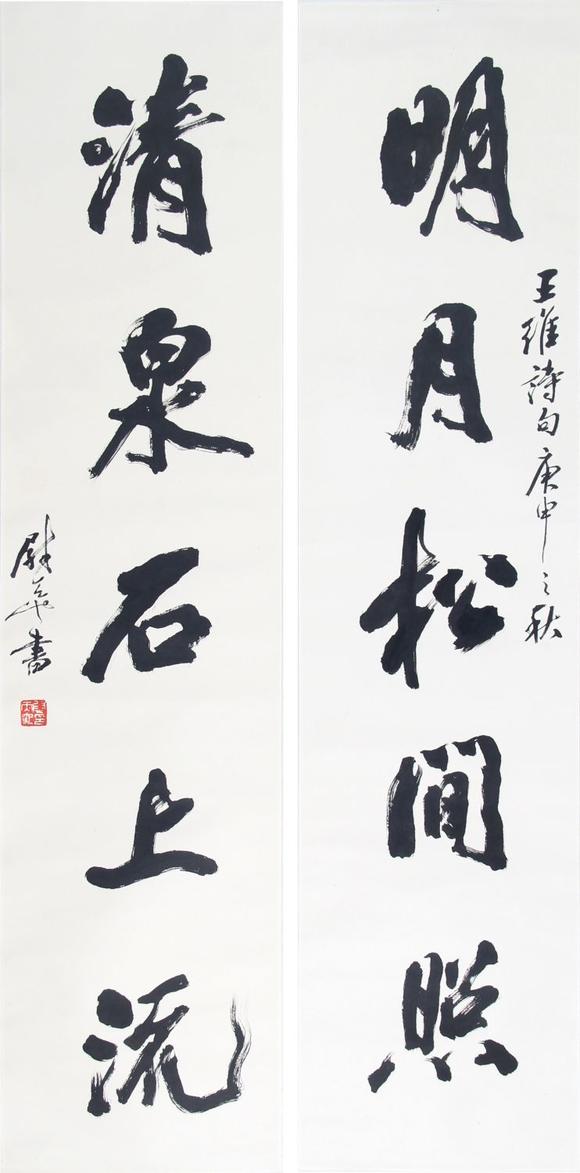 明月松间照
王維詩句庚申之秋
清泉石上流
尉華書